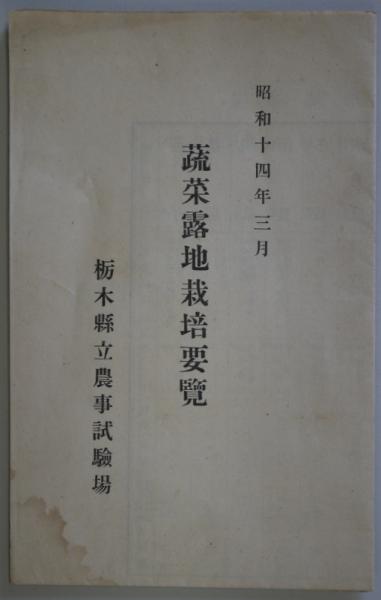 昭和十四年三月
蔬菜露地栽培要覽
栃木縣立農事試驗場